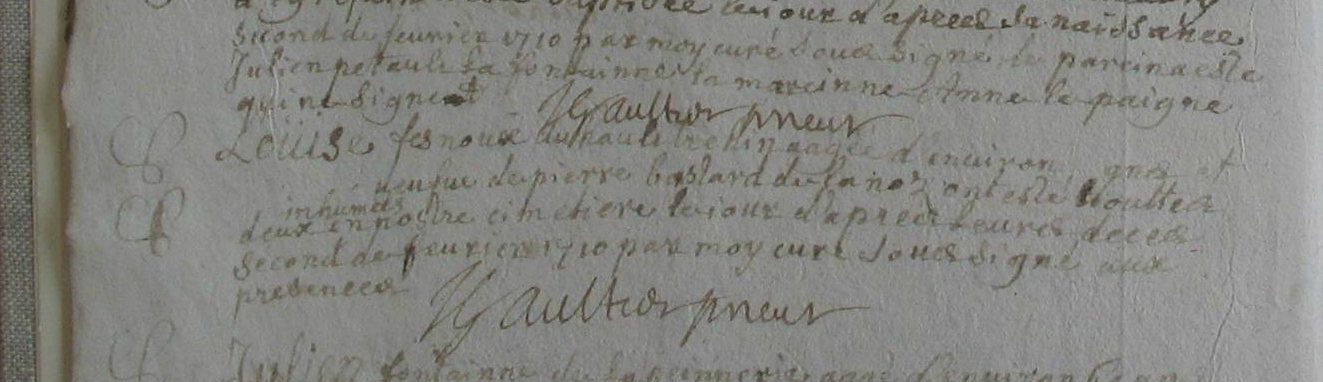 baptisee le iour d'apres sa naissance
second de feurier 1710 par moy curé sous signé le parein a esté
Julien petault la fontainne la mareinne Anne le paigne
qui ne signent
JGaultier prieur
Louise fesnoux du hault agee d'enuiron ans et
ueufue de pierre bastard de la noz ont esté touttes
inhumées
deux en nostre cimetiere le iour d'apres leurs deces
second de feurier 1710 par moy curé sous signé aux
presences
JGaultier prieur
Julien fontainne de la aagé d'enuiron